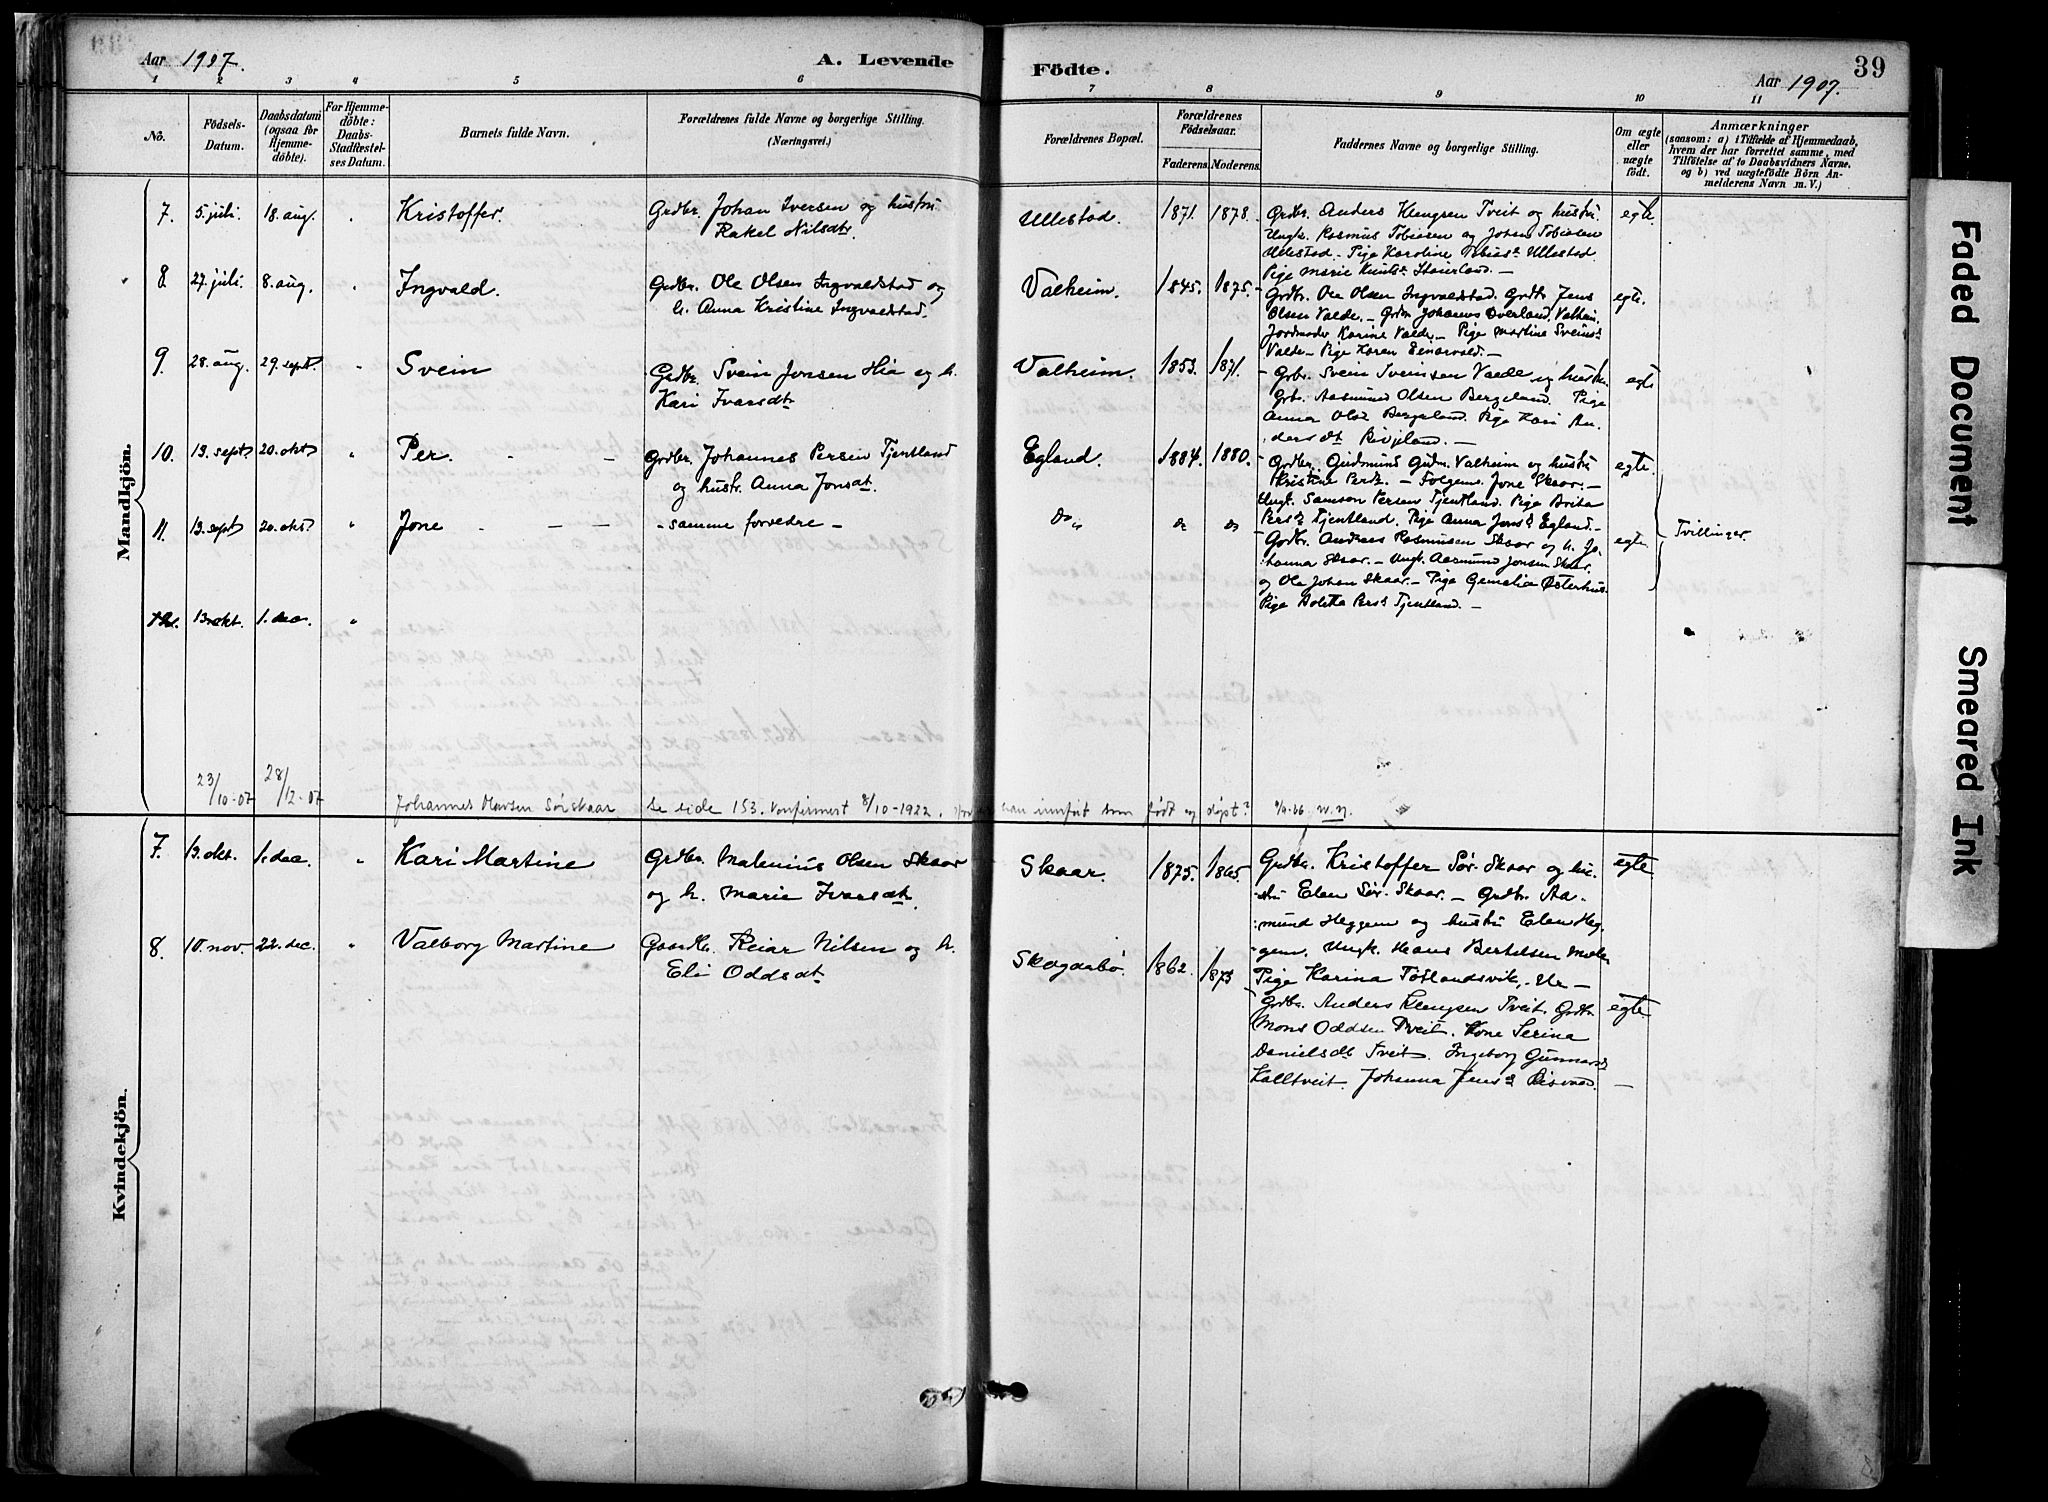 Aar 1907.
A. Levende Födte.
39
Aar 1907.
1 2 3 4 5 6 7 8 9 10 11
No.
Födsels-Datum.
Daabsdatum (ogsaa for Hjemmedöbte).
For Hjemmedöbte: Daabs-Stadfæstelses Datum.
Barnets fulde Navn.
Forældrenes fulde Navne og borgerlige Stilling.
(Næringsvei.)
Forældrenes Bopæl.
Forældrenes Födselsaar.
Faderens. Moderens.
Faddernes Navne og borgerlige Stilling.
Om ægte eller uægte födt.
Anmærkninger
(saasom: a) i Tilfælde af Hjemmedaab,
hvem der har forrettet samme, med
Tilföielse af to Daabsvidners Navne,
og b) ved uægtefödte Börn An-
melderens Navn m. V.)
Mandkjön.
7. 5. juli. 18. aug. " Kristoffer. Grdbr. Johan Iversen og hustru
Rakel Nilsdtr.
Ullestad. 1871. 1878.
Grdbr. Anders Klengsen Tveit og hustru.
Ungk. Rasmus Tobiasen og Johan Tobiasen
Ullestad. Pige Karoline Tobiasd Ullestad.
Pige Marie Knutsd
egte.
8. 27. juli. 8. aug. " Ingvald. Grdbr. Ole Olsen Ingvaldstad og
h. Anna Kristine Ingvaldstad.
Valheim. 1845. 1875.
Grdbr. Ole Olsen Ingvaldstad. Grdbr Jens
Olsen Valde. Johannes Överland, Valheim.
Jordmoder Karine Valde. Pige Martine Sveinsd
Valde. Pige Karen
egte.
9. 28. aug. 29. sept. " Svein Grdbr. Svein Jonsen Hia og h.
Kari Ivarsdtr
Valheim. 1853. 1871.
Grbr. Svein Sveinsen Valde og hustru.
Grbr. Aasmund Olsen Bergeland. Pige
Anna Olsd Bergeland. Pige Kari An-
dersdt
egte
10. 13. sept. 20. okt. " Per. Grdbr. Johannes Persen Tjentland
og hustr. Anna Jonsdt.
Egland. 1884. 1880.
Grdbr. Gudmund Gudm. Valheim og hustru
Kristine Persd. - Jone Skaar. -
Ungk. Samson Persen Tjentland. Pige Brita
Persd Tjentland. Pige Anna Jonsd Egland. -
egte.
11. 13. sept 20. okt. " Jone - samme forældre -
Do do do
Grdbr. Andreas Rasmussen Skaar og h. Jo-
hanna Skaar. - Ungk. Aasmund Jonsen Skaar,
og Ole Johan Skaar. - Pige Gemalia Østerhus.
Pige Bolette Persd Tjentland. -
egte
Tvillinger.
12. 13 okt. 1. dec. "
23/10-07 28/12-07 Johannes Olavsen Sørskaar se side 153. Konfirmert 8/10-1922. han innført som født og døpt?
Kvindekjön.
7. 13. okt. 1. dec. " Kari Martine Grdbr. Malenius Olsen Skaar
og h. Marie Ivarsdt.
Skaar. 1875. 1865.
Grdbr. Kristoffer Sør-Skaar og hu-
stru Elen Sør-Skaar. - Grdbr. Aa-
mund Heggem og hustru Elen Heg-
gem. Ungk. Hans Bertelsen
Pige Karina Tøtlandsvik,
egte
8. 10. nov. 22. dec. " Valborg Martine Gaardbr. Reiar Nilsen og h.
Eli Oddsdt
Skogarbø. 1862. 1873
Grdbr. Anders Klengsen Tveit. Grdbr
Mons Oddsen Tveit. Kone Serina
Danielsdt Tveit. Ingeborg Gunnarsd
Kalltveit. Johanna Jensd
egte
Faded Document
Smeared Ink